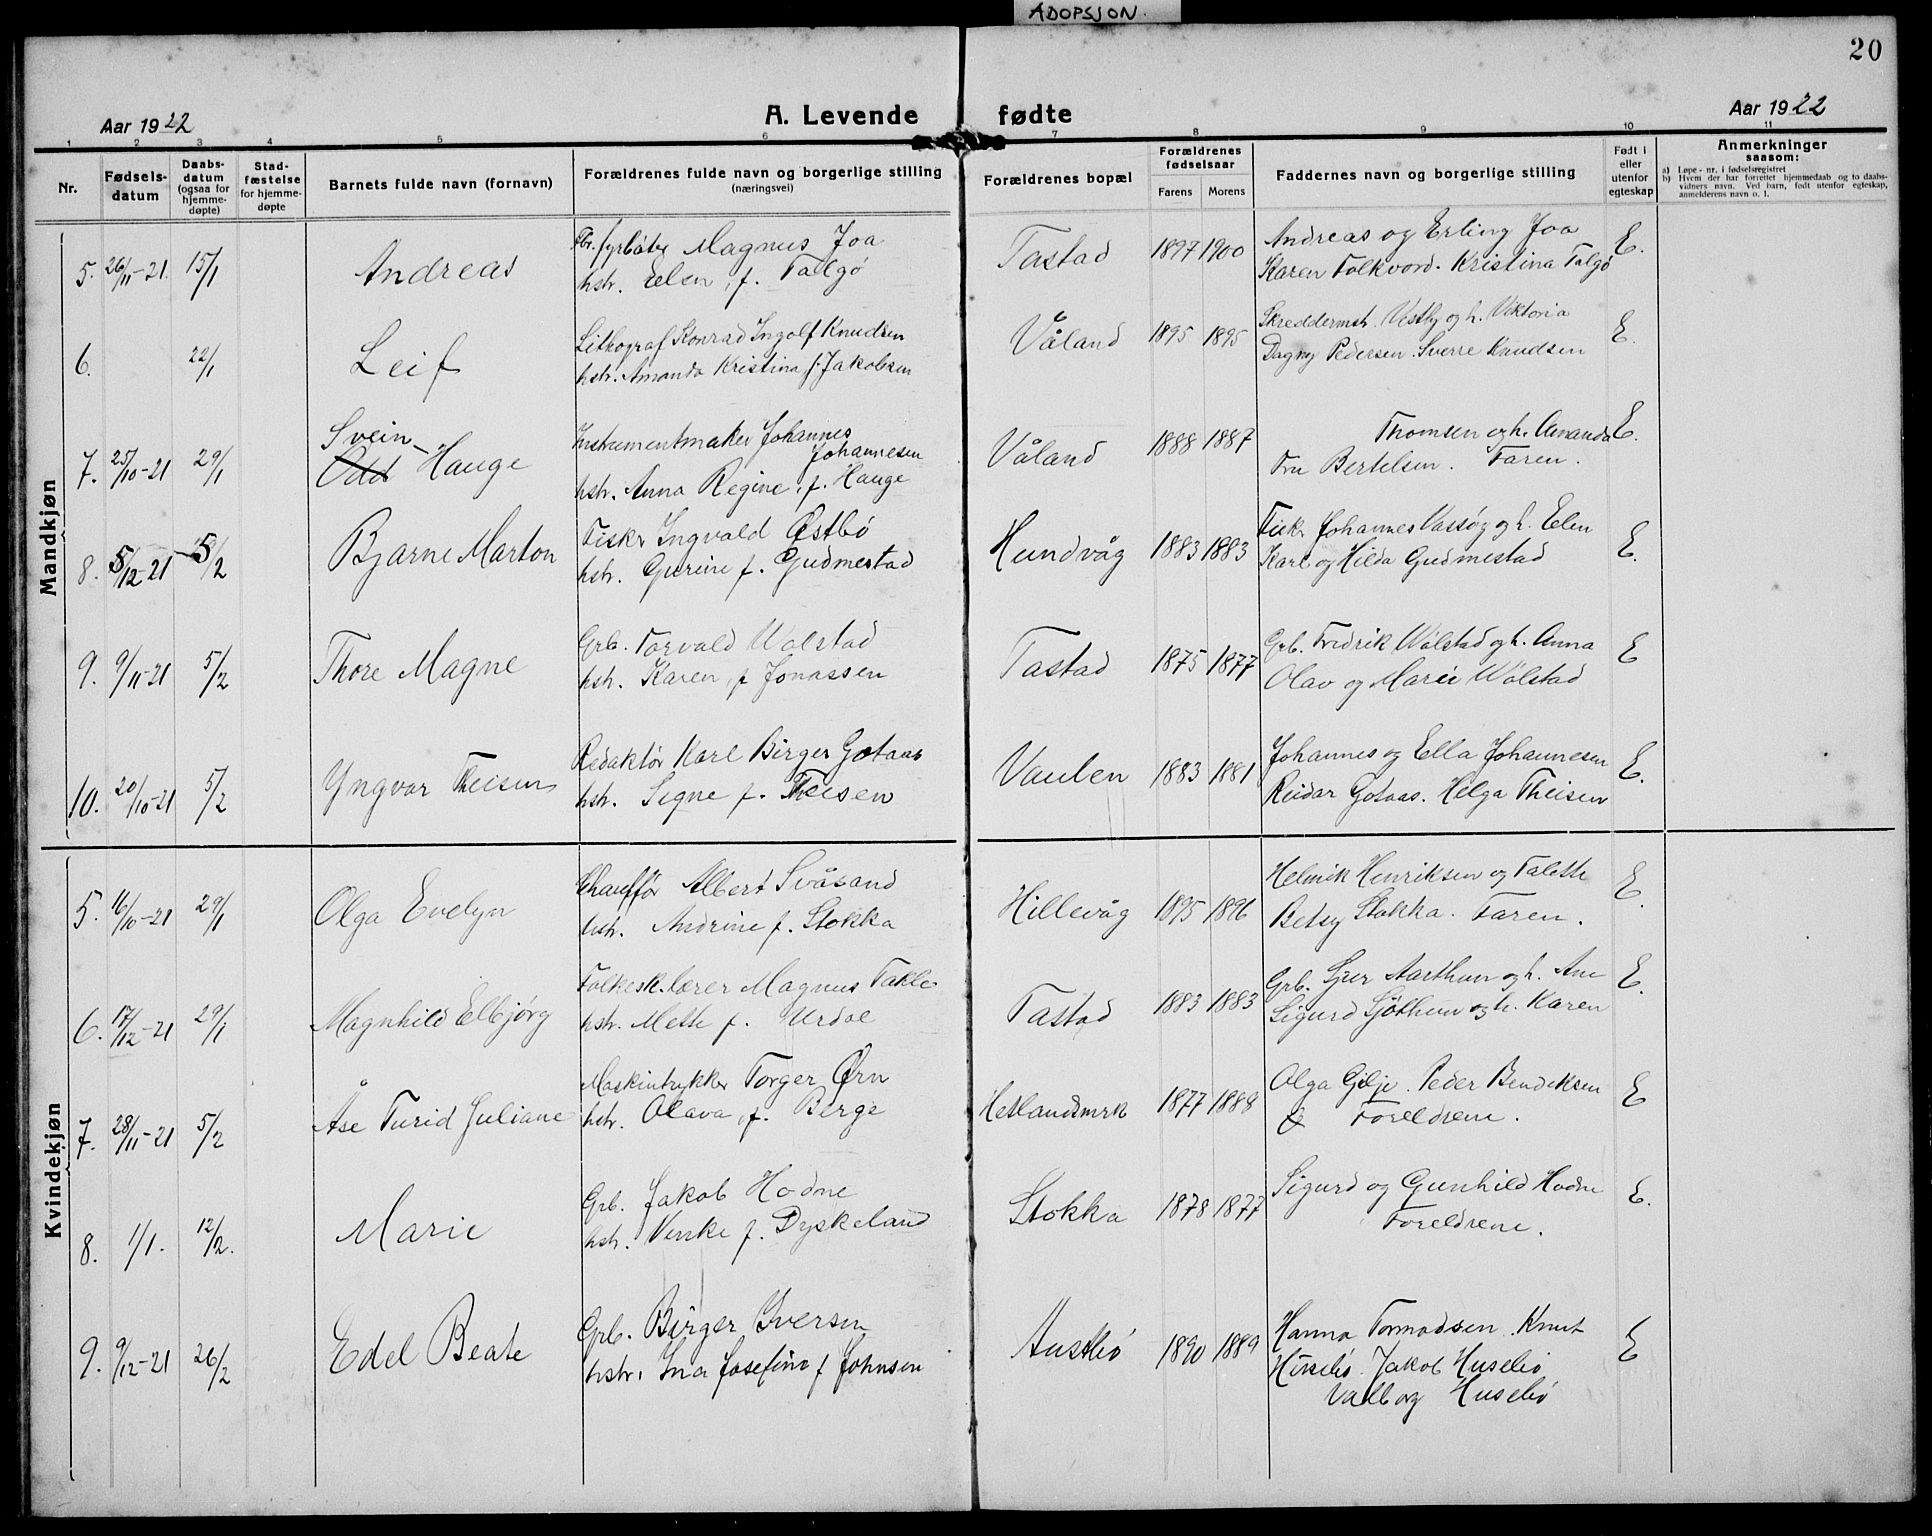 ADOPSJON.
20
Aar 1922
A. Levende fødte
Aar 1922
1 2 3 4 5 6 7 8 9 10 11
Nr.
Fødsels-datum
Daabs-datum (ogsaa for hjemme-døpte)
Stad-fæstelse for hjemme-døpte
Barnets fulde navn (fornavn)
Forældrenes fulde navn og borgerlige stilling (næringsvei)
Forældrenes bopæl
Forældrenes fødselsaar
Farens Morens
Faddernes navn og borgerlige stilling
Født i eller utenfor egteskap
Anmerkninger saasom:
a) Løpe-nr. i fødselsregistret
b) Hvem der har forrettet hjemmedaab og to daabs-vidners navn. Ved barn, født utenfor egteskap, anmelderens navn o. l.
Mandkjøn
5. 26/11-21. 15/1 Andreas
Fbr. fyrbøter Magnus Joa
hstr. Elen, f. Talgö
Tastad 1897 1900
Andreas og Erling Joa
Karen Folkvord. Kristina Talgö
E.
6. 22/1 Leif
Lithograf Konrad Ingolf Knudsen
hstr. Amanda Kristina, f. Jakobsen
Våland 1895 1895
Skreddermstr. Vestby og h. Viktoria
Dagny Pedersen. Sverre Knudsen
E.
7. 25/10-21 29/1 Svein
Odd Hauge
Instrumentmaker Johannes
Johannesen
hstr. Anna Regine, f. Hauge
Våland 1888 1887
Thomsen og h. Amanda
Fru Bertelsen. Faren.
E.
8. 5/12-21 5/2 Bjarne Marton
Fisker Ingvald Østbö
hstr. Gurine f. Gudmestad
Hundvåg 1883 1883
Fisker Johannes Vassöy og h. Elen
Karl og Hilda Gudmestad
E.
9. 9/11-21 5/2 Thore Magne
Grb. Torvald Wolstad
hstr. Karen, f Jonassen
Tastad 1875 1877
Grb. Fredrik Wölstad og h. Anna
Olav og Marie Wölstad
E
10. 20/10-21 5/2 Yngvar Theisen
Redaktør Karl Birger Gotaas
hstr. Signe f. Theisen
Vaulen 1883 1881
Johannes og Ella Johannesen
Reidar Gotaas. Helga Theisen
E.
Kvindekjøn
5. 16/10-21 29/1 Olga Evelyn
Chauffør Albert Svåsand
hstr. Andrine f. Stokka
Hillevåg 1895 1896
Helmik Henriksen og Talette
Betsy Stokka. Faren.
E.
6. 17/12-21 29/1 Magnhild Elbjørg
Folkesk.lærer Magnus Takle
hstr. Mette f. Urdal
Tastad 1883 1883
Grb. Sjur Aarthun og h. Ane
Sigurd Sjöthun og h. Karen
E.
7. 28/11-21 5/2 Åse Turid Juliane
Maskintrykker Torger Ørn
hstr. Olava, f. Berge
Hetlandsmrk 1877 1888
Olga Gilje. Peder Bendiksen
& Foreldrene.
E
8. 1/1. 12/2. Marie
Grb. Jakob Hodne
hstr. Venke f. Dyskeland
Stokka 1878 1877
Sigurd og Gunhild Hodne
Foreldrene.
E.
9. 9/12-21 26/2 Edel Beate
Grb. Birger Iversen
hstr. Ina Josefine f Johnsen
Austbö 1890 1889
Hanna Tormodsen. Knut
Husebö. Jakob Husebö
Valborg Husebö
E